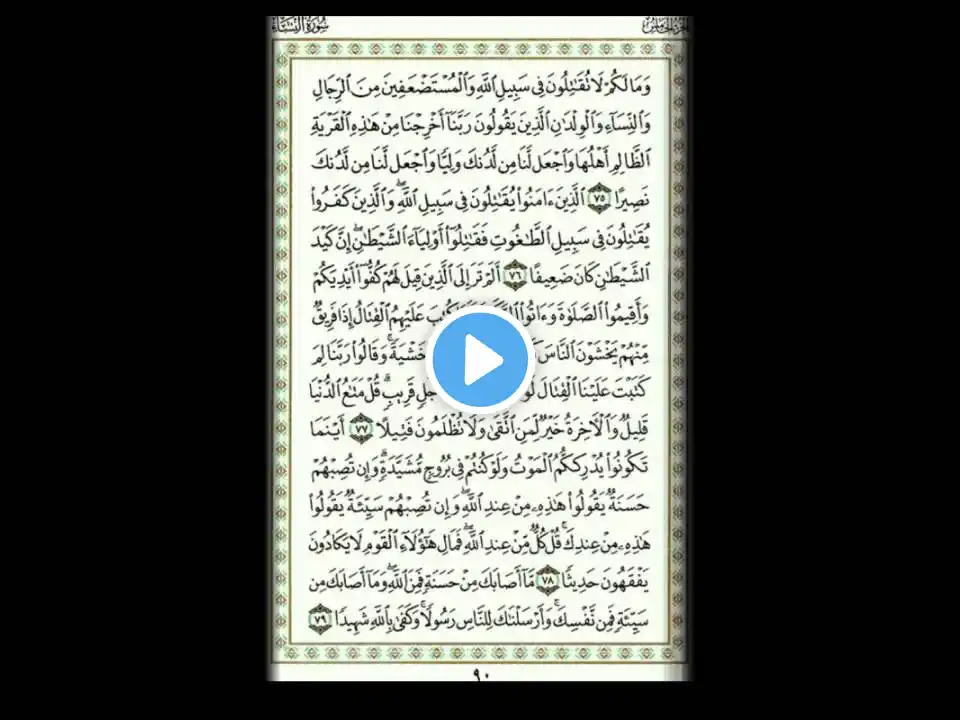 سورة النساء
الجزء الخامس
وَمَا لَكُمْ لَا تُقَٰتِلُونَ فِى سَبِيلِ ٱللَّهِ وَٱلْمُسْتَضْعَفِينَ مِنَ ٱلرِّجَالِ
وَٱلنِّسَآءِ وَٱلْوِلْدَٰنِ ٱلَّذِينَ يَقُولُونَ رَبَّنَآ أَخْرِجْنَا مِنْ هَٰذِهِ ٱلْقَرْيَةِ
ٱلظَّالِمِ أَهْلُهَا وَٱجْعَل لَّنَا مِن لَّدُنكَ وَلِيًّا وَٱجْعَل لَّنَا مِن لَّدُنكَ
نَصِيرًا ٧٥ ٱلَّذِينَ ءَامَنُوا۟ يُقَٰتِلُونَ فِى سَبِيلِ ٱللَّهِ ۖ وَٱلَّذِينَ كَفَرُوا۟
يُقَٰتِلُونَ فِى سَبِيلِ ٱلطَّٰغُوتِ فَقَٰتِلُوٓا۟ أَوْلِيَآءَ ٱلشَّيْطَٰنِ ۖ إِنَّ كَيْدَ
ٱلشَّيْطَٰنِ كَانَ ضَعِيفًا ٧٦ أَلَمْ تَرَ إِلَى ٱلَّذِينَ قِيلَ لَهُمْ كُفُّوٓا۟ أَيْدِيَكُمْ
وَأَقِيمُوا۟ ٱلصَّلَوٰةَ وَءَاتُوا۟ كُتِبَ عَلَيْهِمُ ٱلْقِتَالُ إِذَا فَرِيقٌ
مِّنْهُمْ يَخْشَوْنَ ٱلنَّاسَ خَشْيَةً ۚ وَقَالُوا۟ رَبَّنَا لِمَ
كَتَبْتَ عَلَيْنَا ٱلْقِتَالَ قَرِيبٍ ۗ قُلْ مَتَٰعُ ٱلدُّنْيَا
قَلِيلٌ وَٱلْءَاخِرَةُ خَيْرٌ لِّمَنِ ٱتَّقَىٰ وَلَا تُظْلَمُونَ فَتِيلًا ٧٧ أَيْنَمَا
تَكُونُوا۟ يُدْرِككُّمُ ٱلْمَوْتُ وَلَوْ كُنتُمْ فِى بُرُوجٍ مُّشَيَّدَةٍ ۗ وَإِن تُصِبْهُمْ
حَسَنَةٌ يَقُولُوا۟ هَٰذِهِۦ مِنْ عِندِ ٱللَّهِ ۖ وَإِن تُصِبْهُمْ سَيِّئَةٌ يَقُولُوا۟
هَٰذِهِۦ مِنْ عِندِكَ ۚ قُلْ كُلٌّ مِّنْ عِندِ ٱللَّهِ ۖ فَمَالِ هَٰٓؤُلَآءِ ٱلْقَوْمِ لَا يَكَادُونَ
يَفْقَهُونَ حَدِيثًا ٧٨ مَّآ أَصَابَكَ مِنْ حَسَنَةٍ فَمِنَ ٱللَّهِ ۖ وَمَآ أَصَابَكَ مِن
سَيِّئَةٍ فَمِن نَّفْسِكَ ۚ وَأَرْسَلْنَٰكَ لِلنَّاسِ رَسُولًا ۚ وَكَفَىٰ بِٱللَّهِ شَهِيدًا ٧٩
٩٠